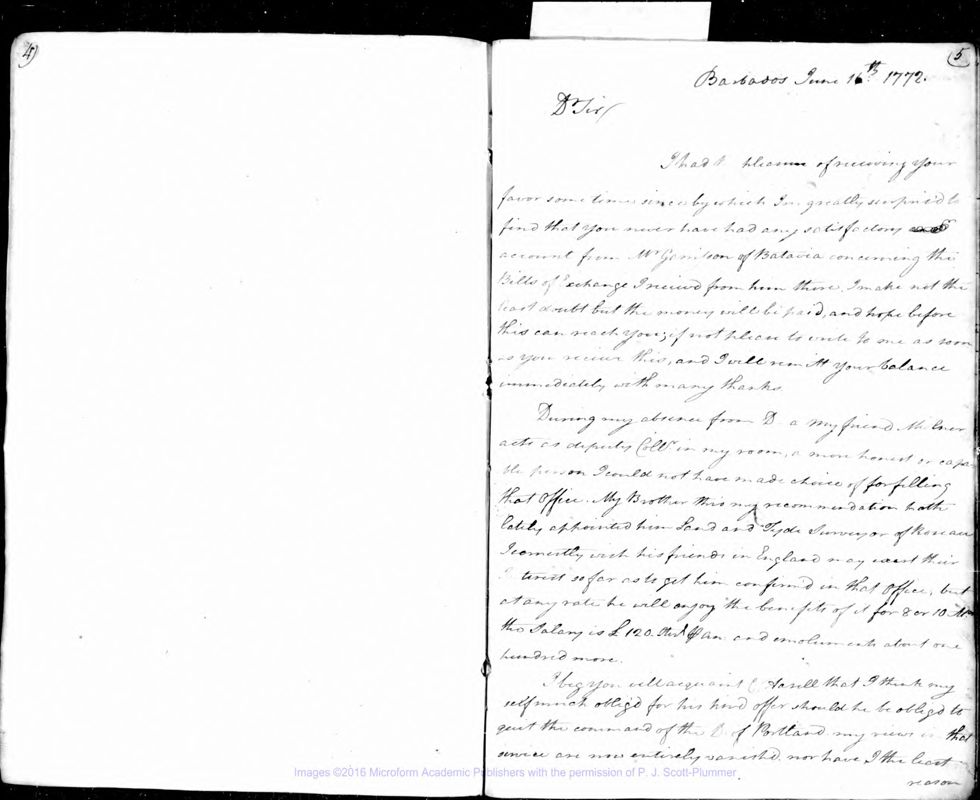 4
5
Barbados June 16th 1772.
Dr Sir/
I had ye pleasure of receiving your
favor some time since by which I'm greatly surpris'd to
find that you never have had any satisfactory
account from Mr Garrison of Batavia concerning the
Bills of Exchange I receiv'd from him there. I make not the
least doubt but the money will be paid, and hope before
this can reach you; if not please to write to me as soon
as you receive this, and I will remitt your balance
immediately with many thanks
During my absence from D a my friend Milner
acts as deputy Collr in my room, a more honest or capa
ble person I could not have made choice of for filling
that Office. My Brother thro my recommendation hath
lately appointed him Land and Tyde Surveyor of Roseau
I earnestly wish his friends in England may exert their
Interest so far as to get him confirm'd in that Office, but
at any rate he will enjoy the benefits of it for 8 or 10 Mos
the Salary is £120 Sterl ⅌ an. and emoluments about one
hundred more.
I beg you will acquaint C that I think my
self much oblig'd for his kind offer should he be oblig'd to
quit the command of the D. of Portland my views in that
service are now entirely vanish'd nor have I the least
reason
Images ©2016 Microform Academic Publishers with the permission of P. J. Scott-Plummer